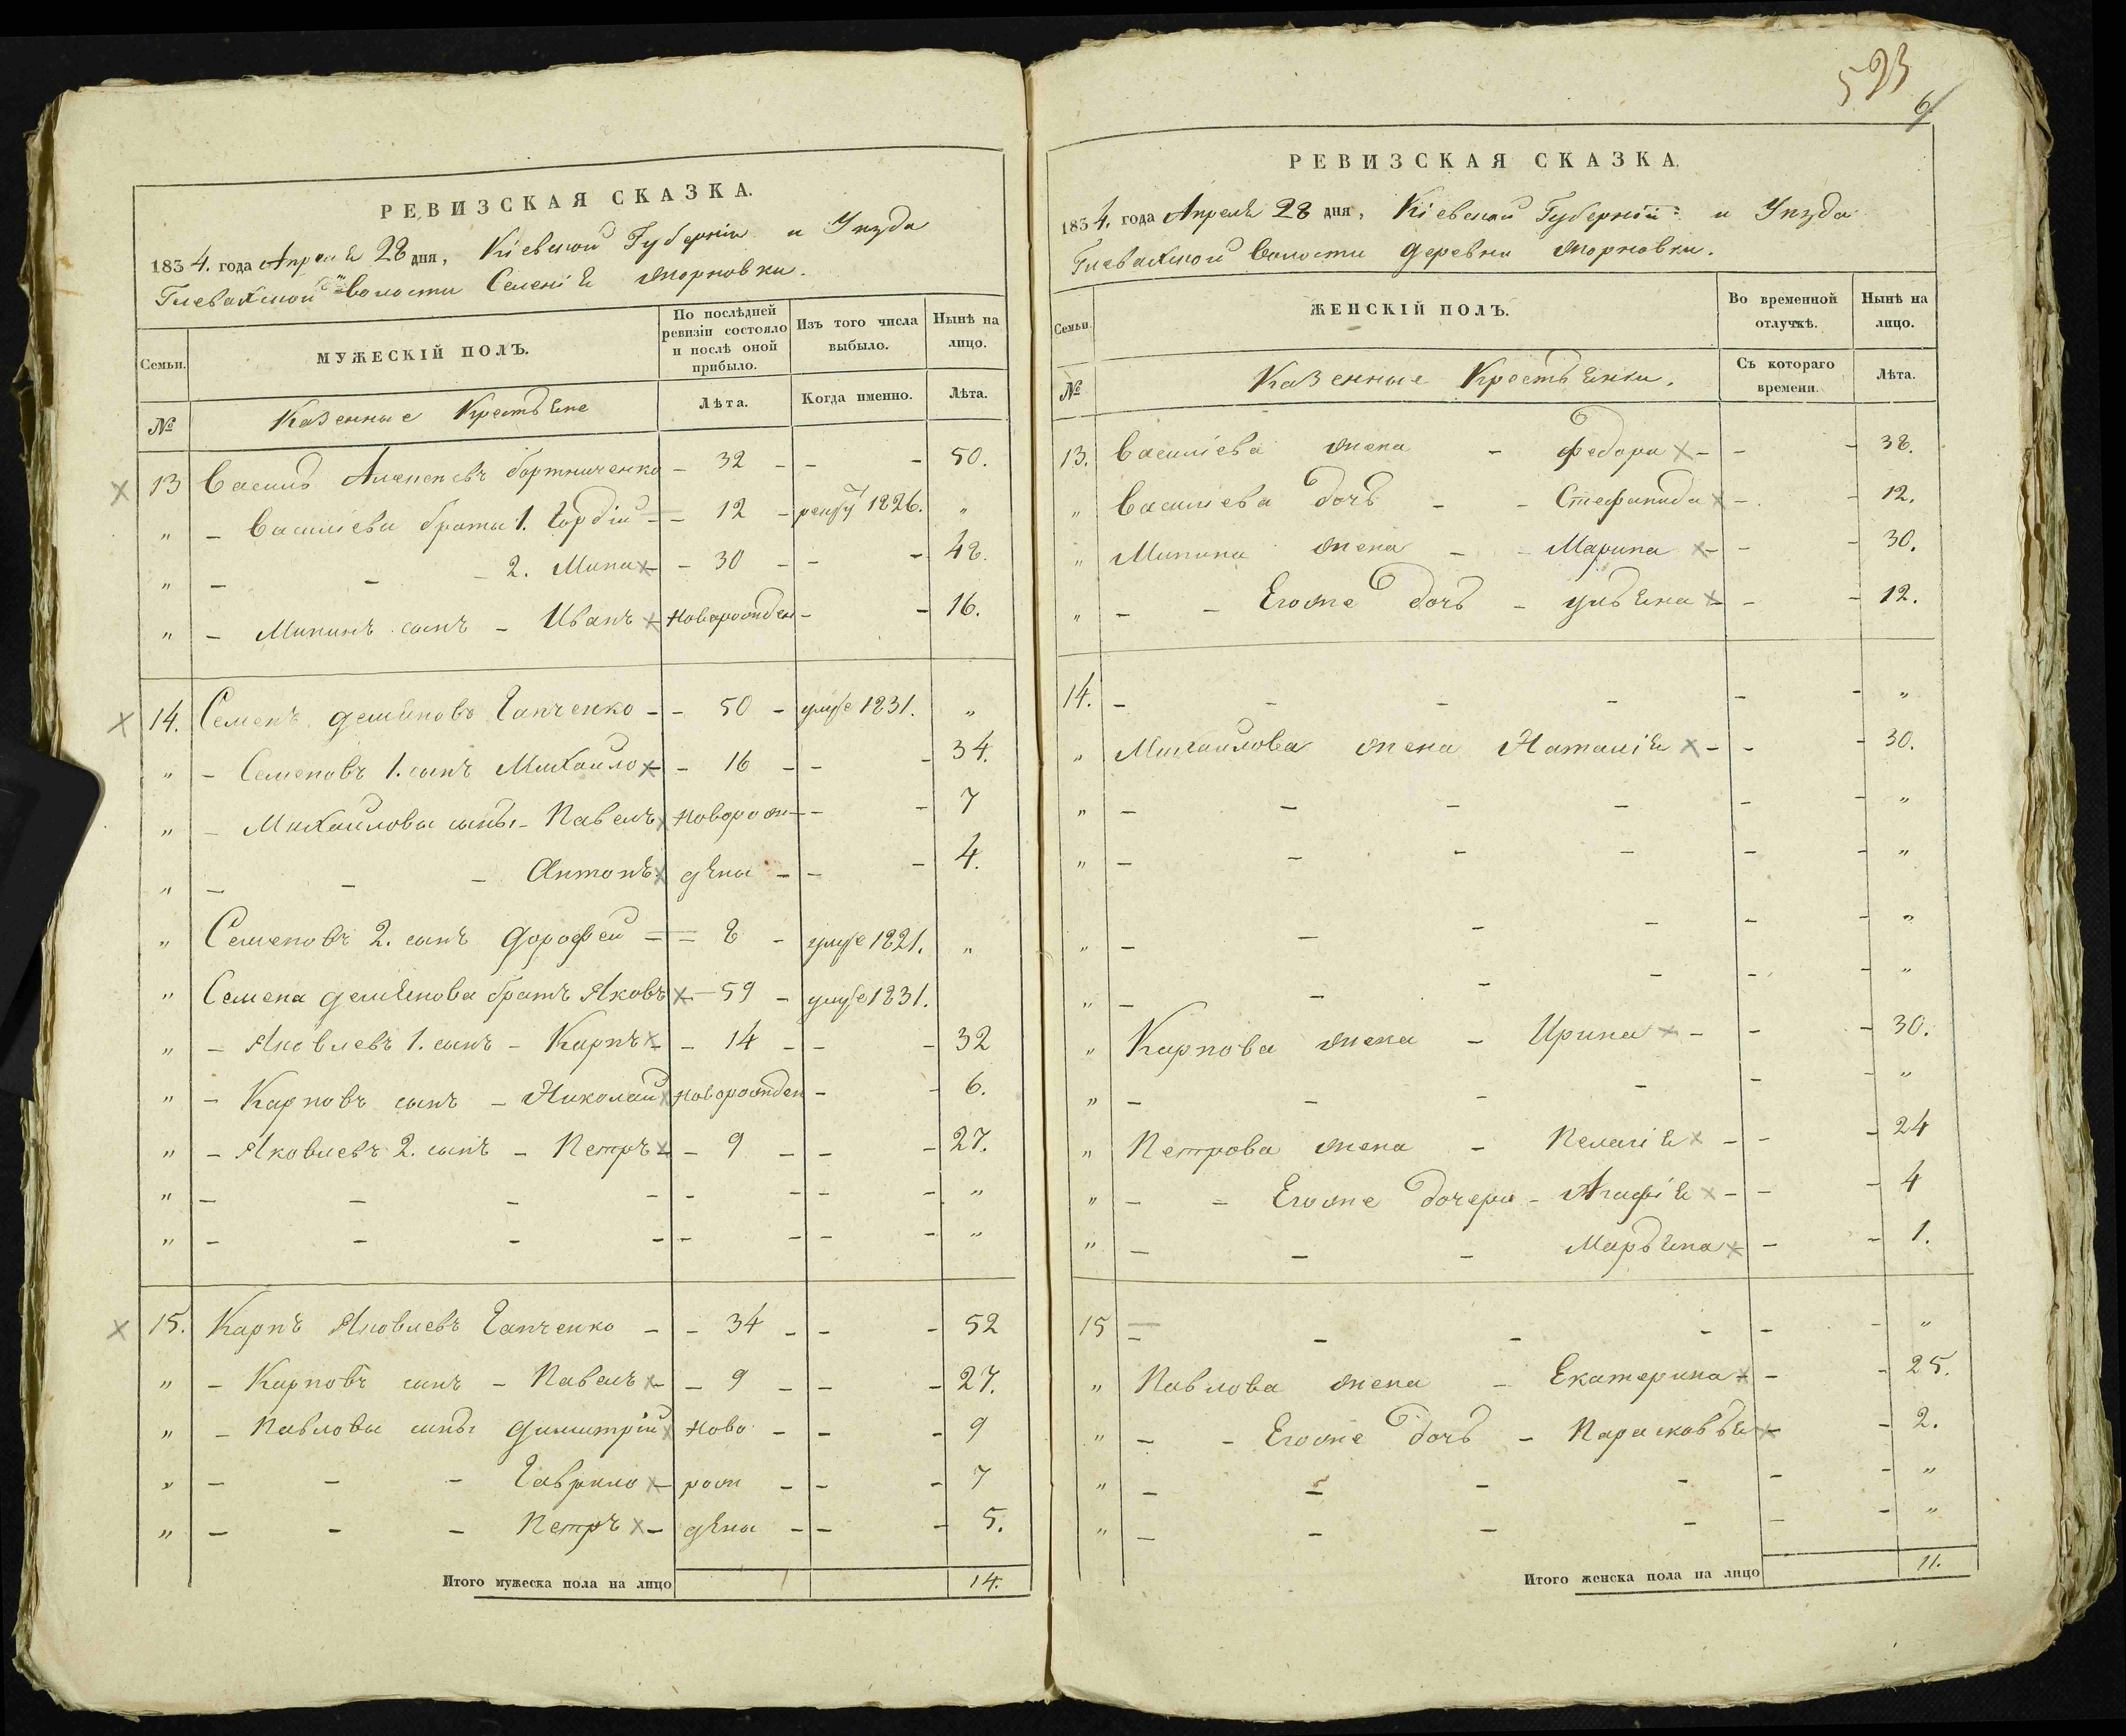 РЕВИЗСКАЯ СКАЗКА.
1834. года Апреля 28 дня, Кіевской Губерніи и Уезда
Глевахской волости Селенія Жорновки.
Семьи.
МУЖЕСКІЙ ПОЛЪ.
По послѣдней ревизіи состояло и послѣ оной прибыло.
Изъ того числа выбыло.
Нынѣ на лицо.
№
Казенные Крестьяне
Лѣта.
Когда именно.
Лѣта.
13 Василь Алексеевъ бортниченко - 32 - - - 50.
" - Василіевы браты 1. Гордій - - 12 - рекру 1826. "
" - - - 2. Мина - - 30 - - - 48.
" - Мининъ сынъ - Иванъ новорожден - - 16.
14. Семенъ демяновъ Гапченко - - 50 - умре 1831. "
" - Семеновъ 1. сынъ Михайло - - 16 - - - 34.
" - Михайловы сыны - Павелъ новорож - - - 7
" - - - Антонъ дены - - - 4.
" Семеновъ 2. сынъ дорофей - = 8 - умре 1821. "
" Семена демянова братъ Яковъ - 59 - умре 1831.
" - Яковлевъ 1. сынъ - Карпъ - - 14 - - - 32
" - Карповъ сынъ - Николай новорожден - - 6.
" - Яковлевъ 2. сынъ - Петръ - 9 - - - 27.
" - - - - - - - - "
" - - - - - - - - "
15. Карпъ Яковлевъ Гапченко - - 34 - - - 52
" - Карповъ сынъ - Павелъ - - 9 - - - 27.
" - Павловы сыны димитрій ново - - - 9
" - - - Гаврило - рож - - - 7
" - - - Петръ - дены - - - 5.
Итого мужеска пола на лицо 14.
523
6
РЕВИЗСКАЯ СКАЗКА.
1834. года Апреля 28 дня, Кіевской Губерніи и Уезда
Глевахской волости деревни Жорновки.
Семьи.
ЖЕНСКІЙ ПОЛЪ.
Во временной отлучкѣ.
Нынѣ на лицо.
№
Казенные Крестьянки.
Съ котораго времени.
Лѣта.
13. Василіева жена - Федора - - - 38.
" Василіева дочь - - Стефанида - - 12.
" Минина жена - - Марина - - - 30.
" - - Егоже дочь - ульяна - - - 12.
14. - - - - - - "
" Михайлова жена Наталія - - - 30.
" - - - - - - "
" - - - - - - "
" - - - - - - "
" - - - - - - "
" Карпова жена - Ирина - - - 30.
" - - - - - - "
" Петрова жена - Пелагія - - - 24
" - - Егоже дочери - Агафія - - - 4
" - - - Марьяна - - 1.
15 - - - - - - "
" Павлова жена - Екатерина - - 25.
" - - Егоже дочь - Парасковья - - 2.
" - - - - - - "
" - - - - - - "
Итого женска пола на лицо 11.